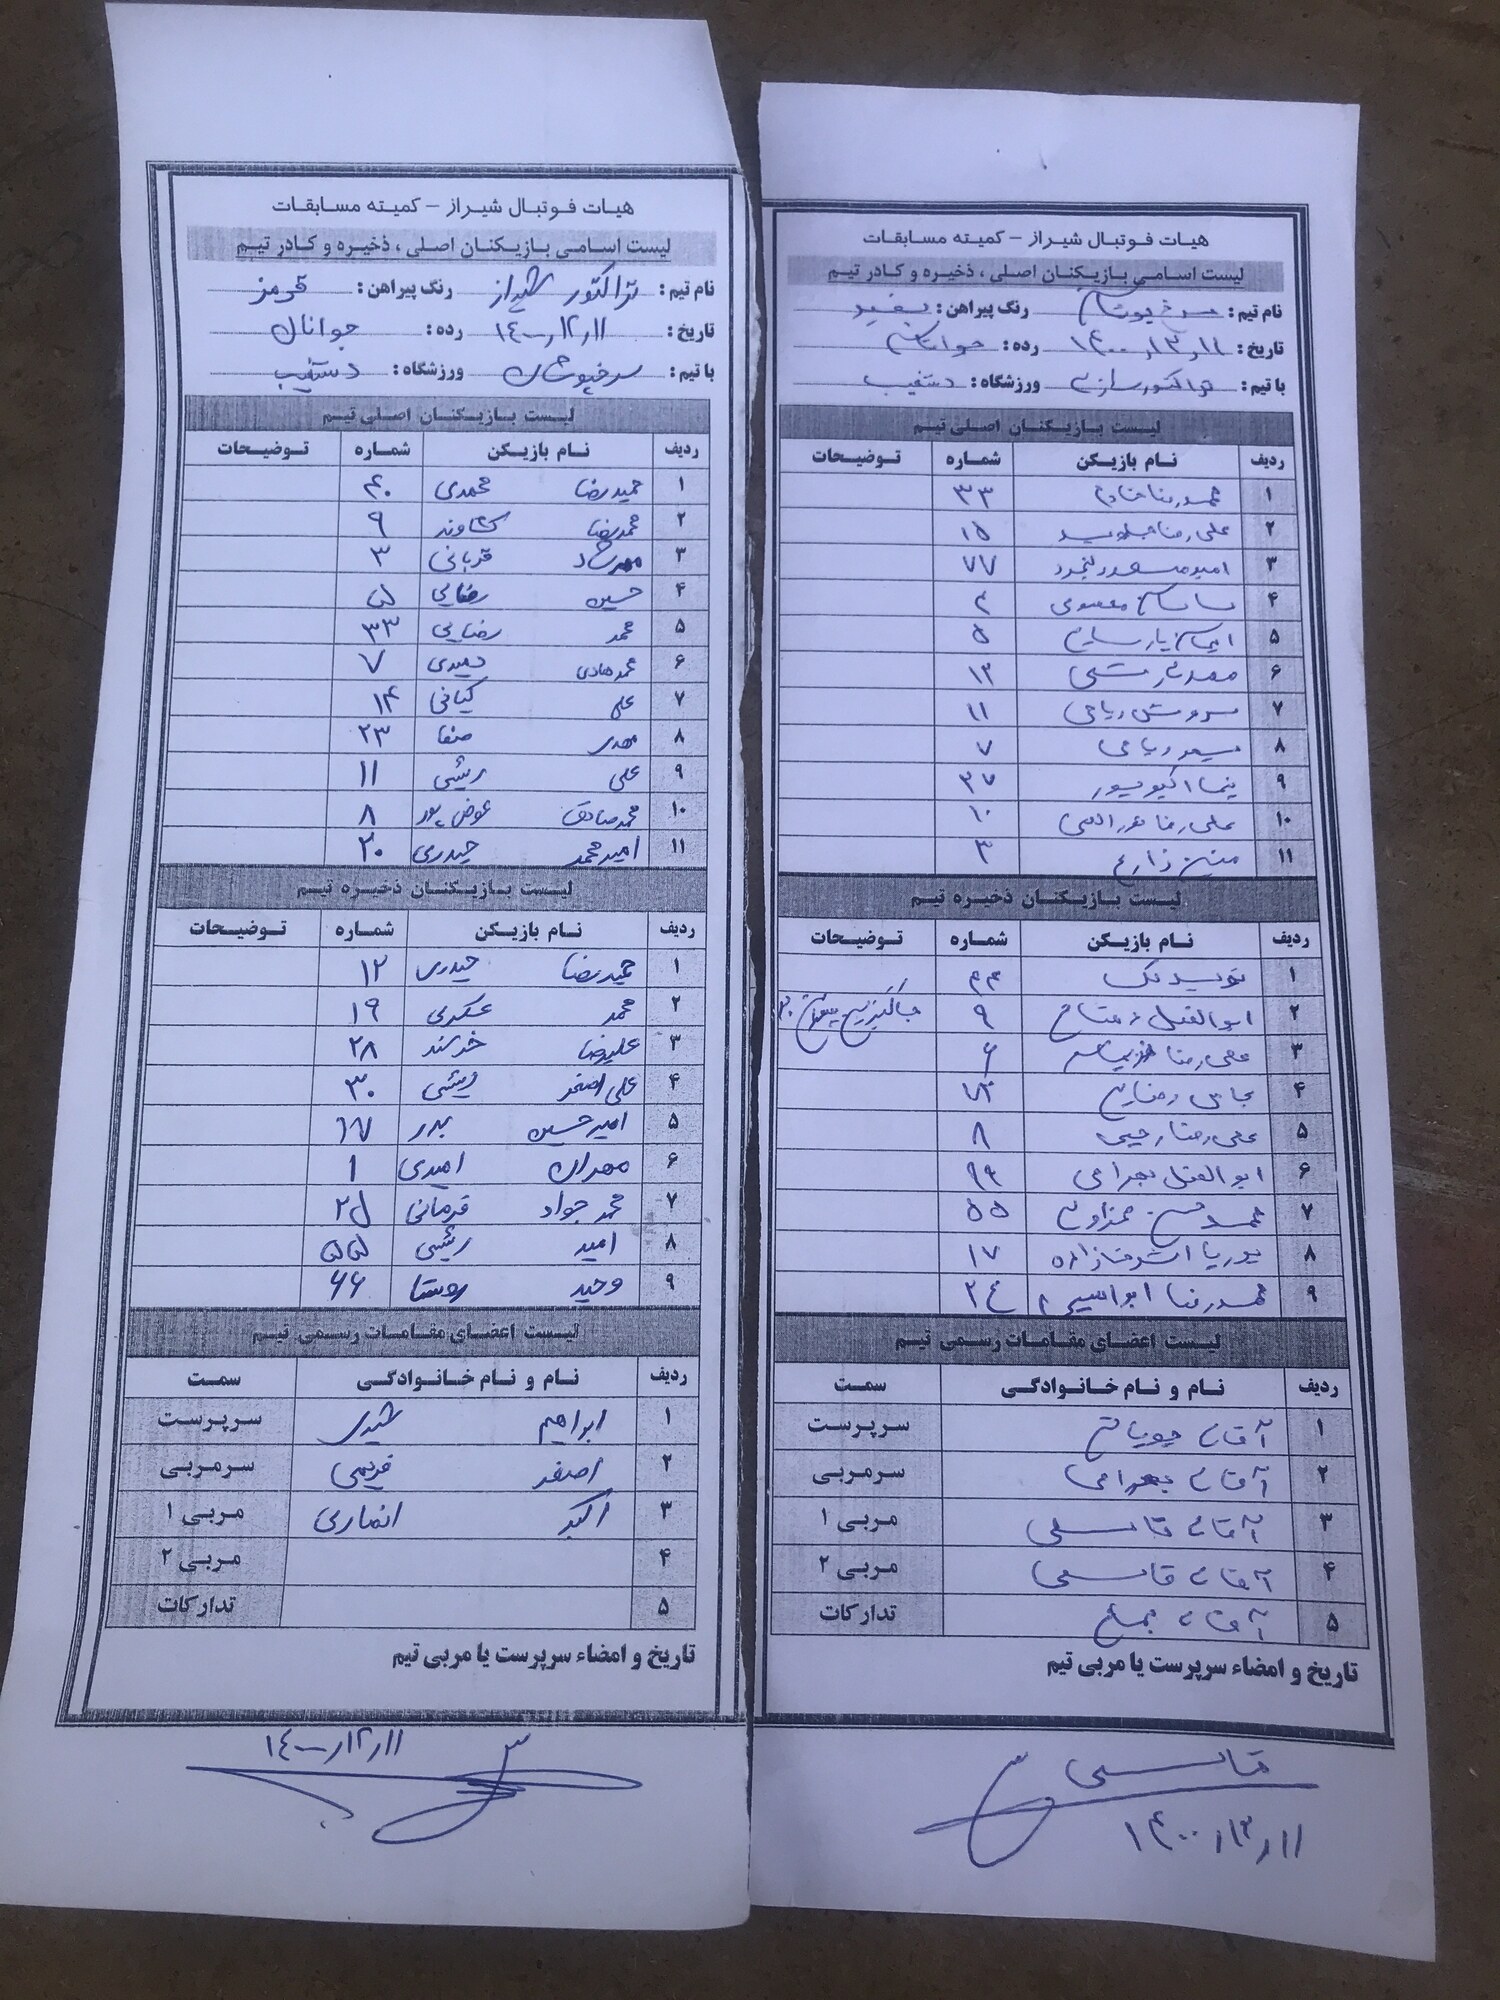 هیات فوتبال شیراز – کمیته مسابقات
لیست اسامی بازیکنان اصلی ، ذخیره و کادر تیم
نام تیم : سرخپوشان رنگ پیراهن : سفید
تاریخ : ۱۴۰۰/۱۲/۱۱ رده : جوانان
با تیم : تراکتورسازی ورزشگاه : دستغیب
لیست بازیکنان اصلی تیم
ردیف نام بازیکن شماره توضیحات
۱ محمدرضا خادم ۳۳
۲ علی رضا ۱۵
۳ امیرمسعود ۷۷
۴ ساسان ۲
۵ ۵
۶ ۱۲
۷ سروش ریاحی ۱۱
۸ ریاحی ۷
۹ ۳۷
۱۰ علی رضا ۱۰
۱۱ متین زارع ۳
لیست بازیکنان ذخیره تیم
ردیف نام بازیکن شماره توضیحات
۱ ۴۴
۲ ابوالفضل ۹ جایگزین
۳ علی رضا ۶
۴ عباس رضایی ۷۴
۵ علی رضا رحیمی ۸
۶ ابوالفضل بهرامی ۹۹
۷ محمد حسن ۵۵
۸ پوریا ۱۷
۹ محمدرضا ابراهیمی ۲۴
لیست اعضای مقامات رسمی تیم
ردیف نام و نام خانوادگی سمت
۱ آقای سرپرست
۲ آقای بهرامی سرمربی
۳ آقای قاسمی مربی ۱
۴ آقای قاسمی مربی ۲
۵ آقای تدارکات
تاریخ و امضاء سرپرست یا مربی تیم
قاسمی
۱۴۰۰/۱۲/۱۱
هیات فوتبال شیراز – کمیته مسابقات
لیست اسامی بازیکنان اصلی ، ذخیره و کادر تیم
نام تیم : تراکتور شیراز رنگ پیراهن : قرمز
تاریخ : ۱۴۰۰/۱۲/۱۱ رده : جوانان
با تیم : سرخپوشان ورزشگاه : دستغیب
لیست بازیکنان اصلی تیم
ردیف نام بازیکن شماره توضیحات
۱ حمیدرضا محمدی ۴۰
۲ محمدرضا ۹
۳ مهرشاد قربانی ۳
۴ حسین رضایی ۵
۵ محمد رضایی ۳۳
۶ محمدهادی حمیدی ۷
۷ علی کیانی ۱۴
۸ مهدی صفا ۲۳
۹ علی ریشی ۱۱
۱۰ محمدصادق عوض پور ۸
۱۱ امیرمحمد حیدری ۲۰
لیست بازیکنان ذخیره تیم
ردیف نام بازیکن شماره توضیحات
۱ حمیدرضا حیدری ۱۲
۲ محمد عسکری ۱۹
۳ علیرضا خرسند ۲۸
۴ علی اصغر ریشی ۳۰
۵ امیرحسین بدر ۱۷
۶ مهران امیدی ۱
۷ محمدجواد قرمانی ۲۵
۸ امید ریشی ۵۵
۹ وحید روستا ۶۶
لیست اعضای مقامات رسمی تیم
ردیف نام و نام خانوادگی سمت
۱ ابراهیم شیدی سرپرست
۲ اصغر کریمی سرمربی
۳ اکبر انصاری مربی ۱
۴ مربی ۲
۵ تدارکات
تاریخ و امضاء سرپرست یا مربی تیم
۱۴۰۰/۱۲/۱۱